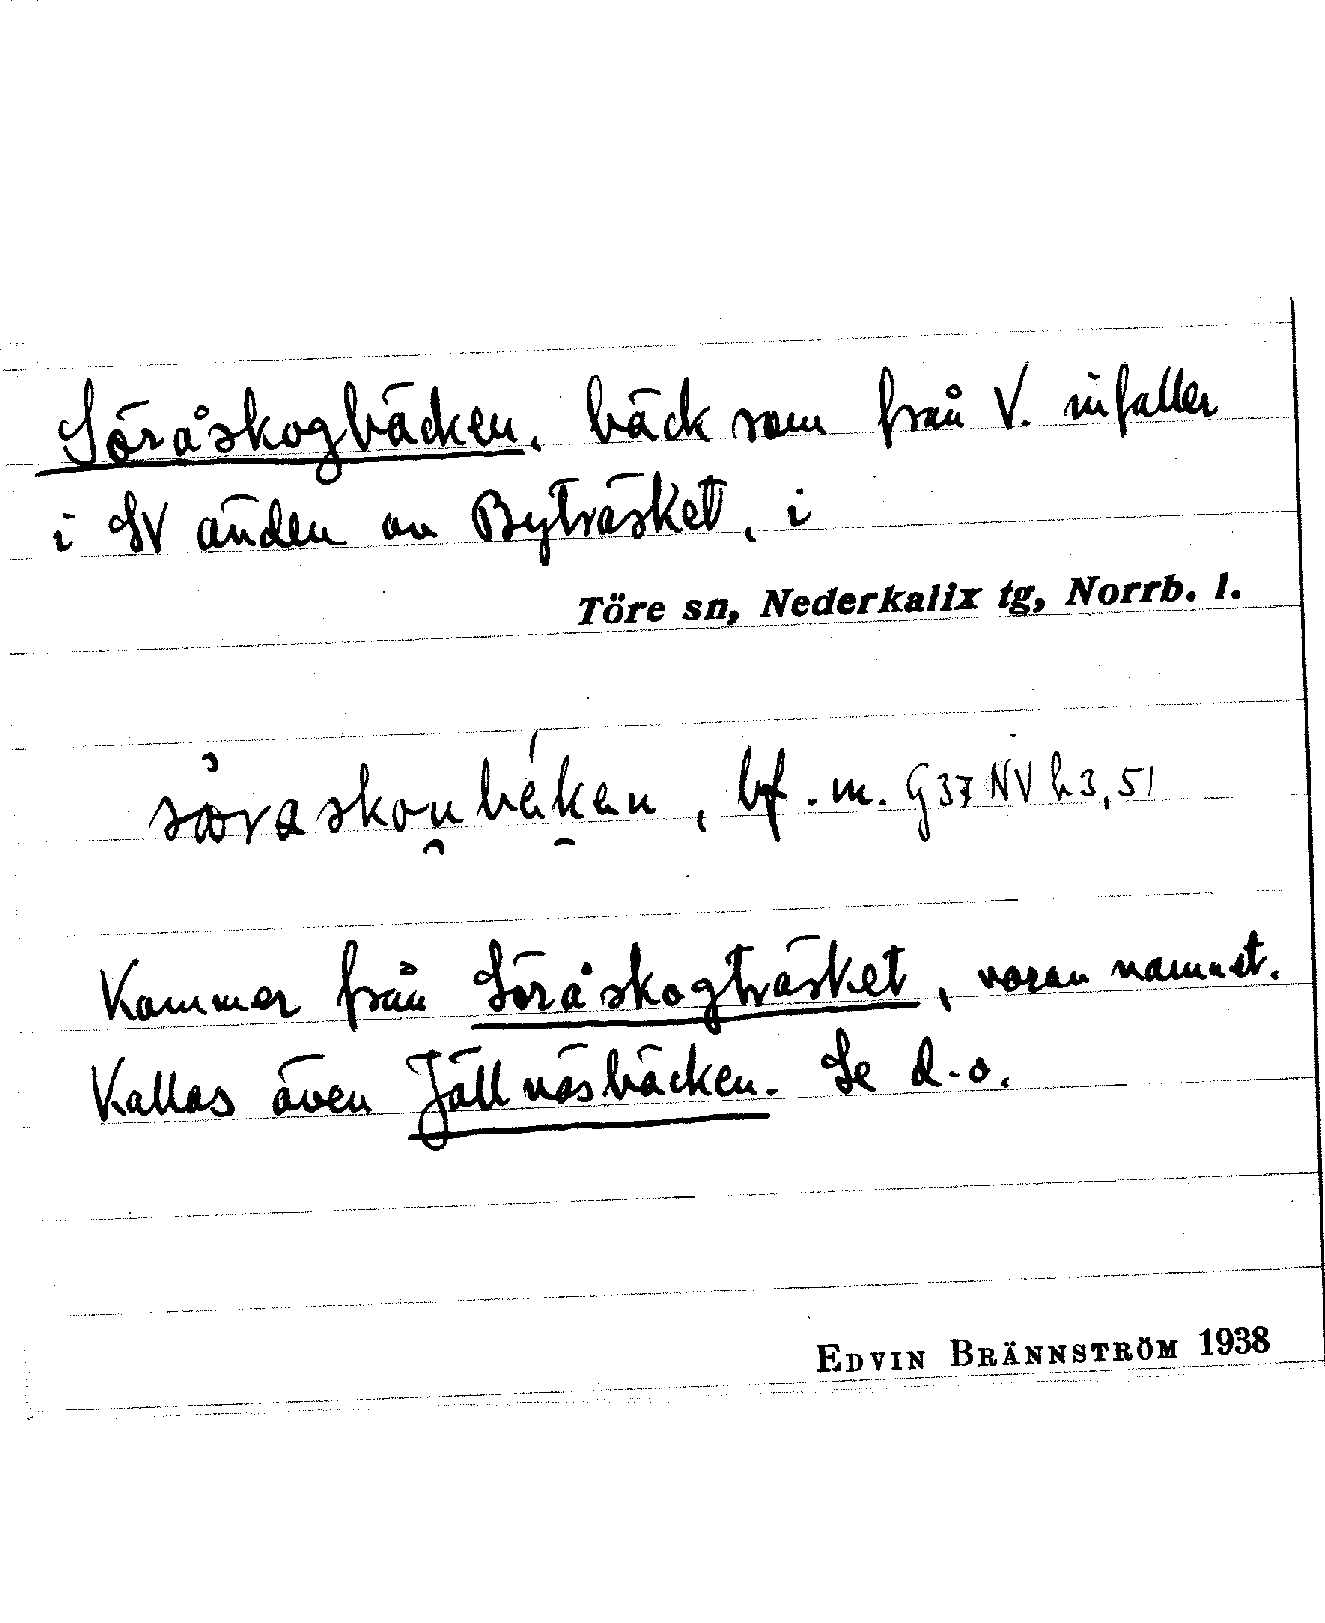 Söråskogbäcken, bäck som från V. infaller
i SV änden av Byträsket, i
Töre sn, Nederkalix tg, Norrb. l.
bf. m. G37 NV h3,51
Kommer från Söråskogträsket, varav namnet.
Kallas även Jällnäsbäcken. Se d.o.
EDVIN BRÄNNSTRÖM 1938